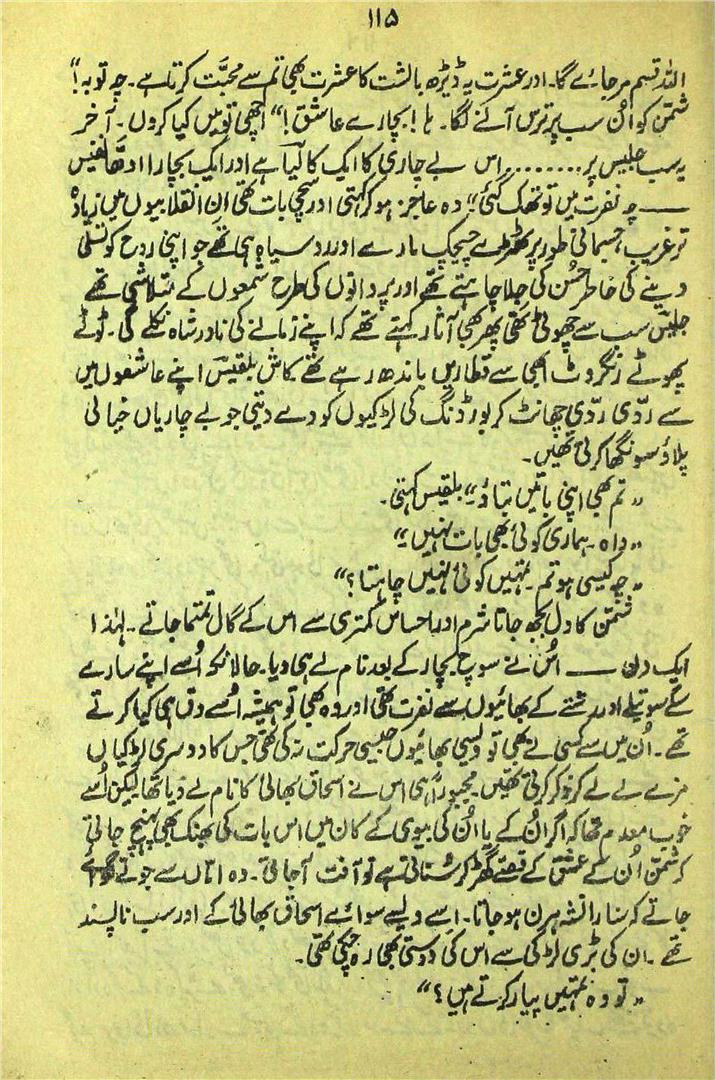 ۱۱۵
اللہ قسم مر جائے گا۔ اور عشرت یہ ڈیڑھ بالشت کا عشرت بھی تم سے محبّت کرتا ہے۔ چہ توبہ!“
شمّن کو اُن سب پر ترس آنے لگا۔ ہا! بچارے عاشق!“ اچھی تو میں کیا کروں۔ آخر
یہ سب جلیس پر........ اس بے چاری کا ایک کالیّا ہے اور ایک بچارا ادھّا نفیس
—— چہ نفرت میں تو تھک گئی“ وہ عاجز ہو کر کہتی اور سچی بات تھی ان انقلابیوں میں زیادہ
تر غریب، جسمانی طور پر کھڑے چیچک مارے اور رو سیاہ ہی تھے جو اپنی روح کو تسلی
دینے کی خاطر حُسن کی جلا چاہتے تھے اور پروانوں کی طرح شمعوں کے متلاشی تھے
جلیس سب سے چھوٹی تھی پھر بھی آثار کہتے تھے کہ اپنے زمانے کی نادر شاہ نکلے گی۔ ٹوٹے
پھوٹے رنگروٹ ابھی سے قطاریں باندھ رہے تھے کاش بلقیس اپنے عاشقوں میں
سے ردّی ردّی چھانٹ کر بورڈنگ کی لڑکیوں کو دے دیتی جو بے چاریاں خیالی
پلاؤ سونگھا کرتی تھیں۔
”تم بھی اپنی باتیں بتاؤ“ بلقیس کہتی۔
”واہ۔ ہماری کوئی بھی بات نہیں“
”چہ کیسی ہو تم۔ تمہیں کوئی نہیں چاہتا؟“
شمّن کا دل بجھ جاتا شرم اور احساس کمتری سے اس کے گال تمتما جاتے۔ لہٰذا
ایک دن —— اُس نے سوچ بچار کے بعد نام لے ہی دیا۔ حالانکہ اُسے اپنے سارے
سگے سوتیلے اور رشتے کے بھائیوں سے نفرت تھی اور وہ بھی تو ہمیشہ اُسے دق ہی کیا کرتے
تھے۔ اُن میں سے کسی نے بھی تو ویسی بھائیوں جیسی حرکت نہ کی تھی جس کا دوسری لڑکیاں
مزے لے لے کر ذکر کرتی تھیں۔ مجبوراً ہی اس نے اسحاق بھائی کا نام لے دیا تھا لیکن اُسے
خوب معلوم تھا کہ اگر اُن کے یا اُن کی بیوی کے کان میں اس بات کی بھنک بھی پہنچ جاتی
کہ شمّن اُن کے عشق کے قصّے گھڑ کر سُناتی ہے تو آفت آ جاتی۔ وہ اماں سے جوتے
جاتے کہ سارا نشہ ہرن ہو جاتا۔ اسے ویسے سوائے اسحاق بھائی کے اور سب ناپسند
تھے۔ ان کی بڑی لڑکی سے اس کی دوستی بھی رہ چکی تھی۔
”تو وہ تمہیں پیار کرتے ہیں؟“